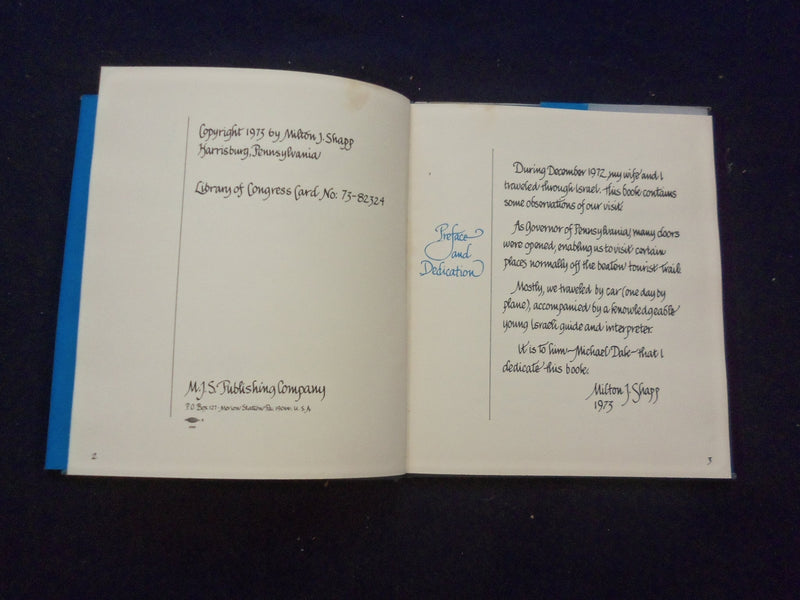 Copyright 1973 by Milton J. Shapp
Harrisburg, Pennsylvania
Library of Congress Card No: 73-82324
M.J.S. Publishing Company
P.O. Box 127 - Merion Station Pa. 19066 U.S.A.
2
Preface
and
Dedication
During December 1972, my wife and I
traveled through Israel. This book contains
some observations of our visit.
As Governor of Pennsylvania, many doors
were opened, enabling us to visit certain
places normally off the beaten tourist trail.
Mostly, we traveled by car (one day by
plane), accompanied by a knowledgeable
young Israeli guide and interpreter.
It is to him—Michael Dak—that I
dedicate this book.
Milton J. Shapp
1973
3